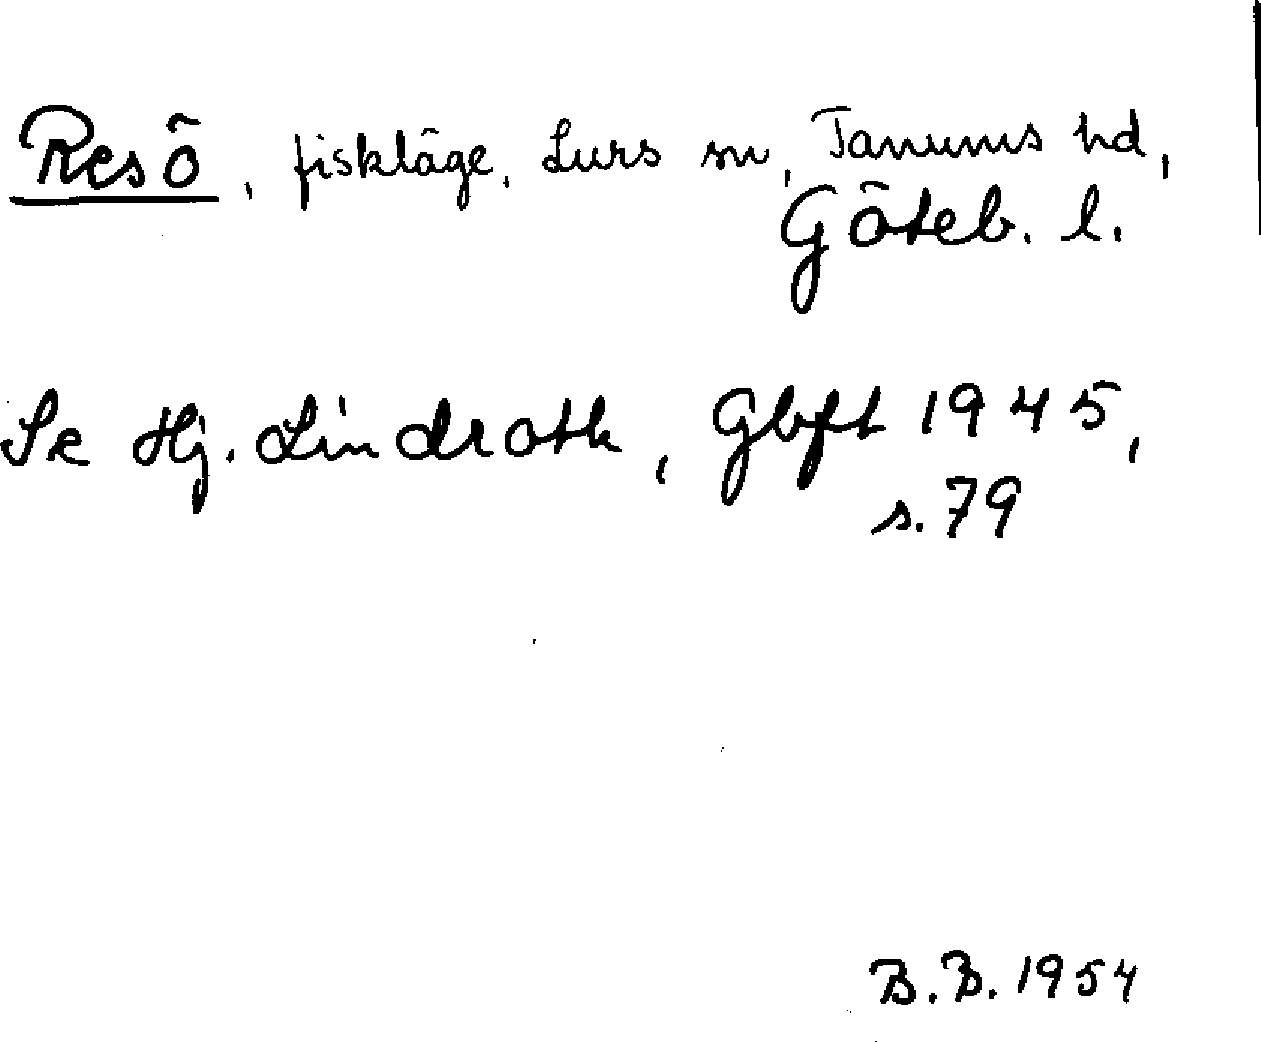 Resö, fiskläge, Lurs sn, Tanums hd,
Göteb. l.
Se Hj. Lindroth, Gbft 1945,
s. 79
B.B. 1954